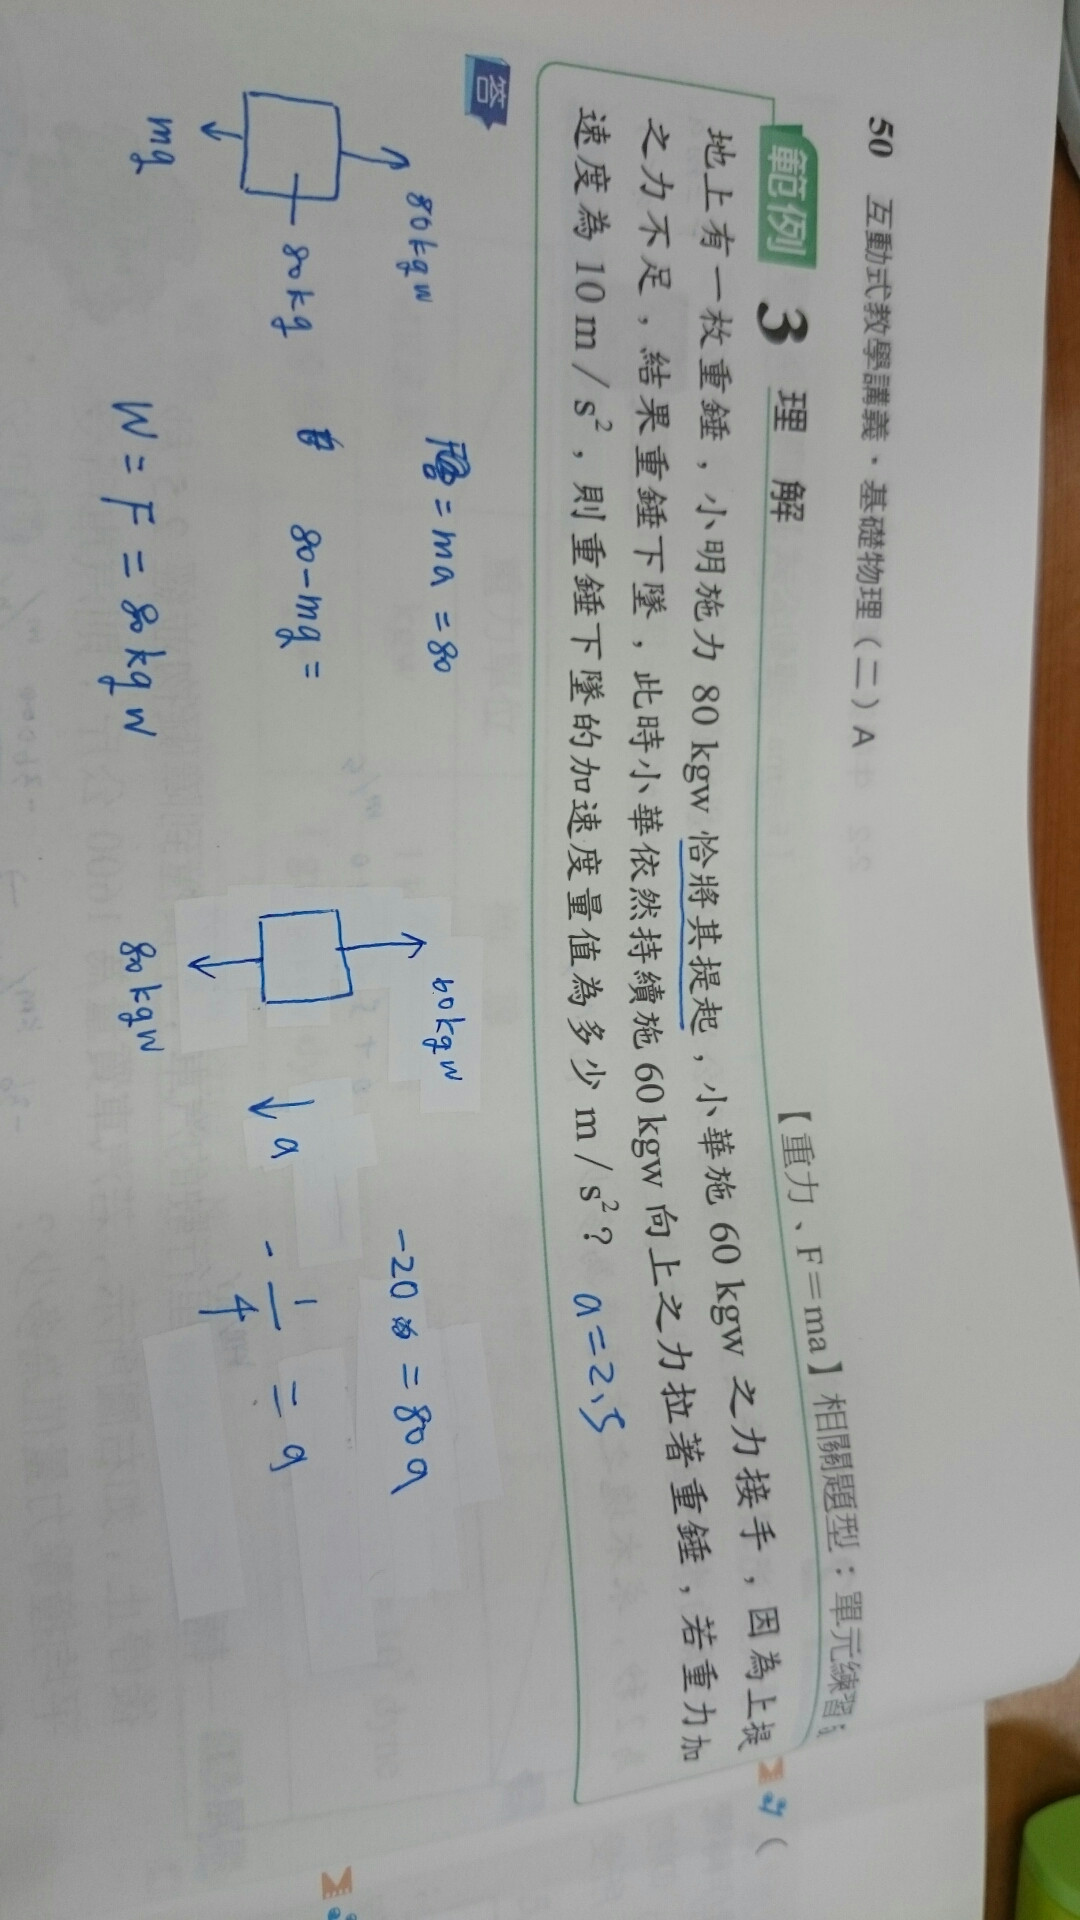 50 互動式教學講義、基礎物理(二)A
範例 3 理 解 【重力、F=ma】相關題型:單元練習
地上有一枚重錘,小明施力 80 kgw 恰將其提起,小華施 60 kgw 之力接手,因為上提
之力不足,結果重錘下墜,此時小華依然持續施 60 kgw 向上之力拉著重錘,若重力加
速度為 10 m/s²,則重錘下墜的加速度量值為多少 m/s²? a=2.5
答
80kgw
80kg
mg
= ma = 80
80-mg =
W = F = 80kgw
60kgw
80kgw
a
-20 = 80a
-1/4 = a